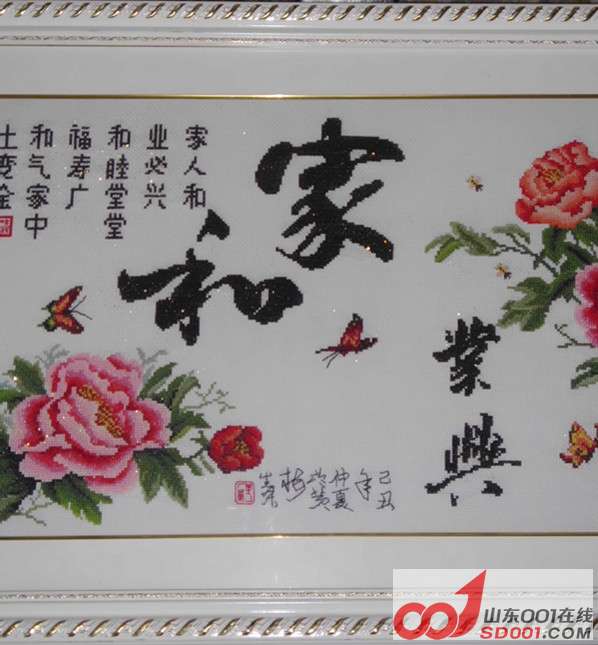 家和
業興
家人和
业必兴
和睦堂堂
福寿广
和气家中
土变金
己丑
年
仲夏
001
山东001在线
SD001.COM